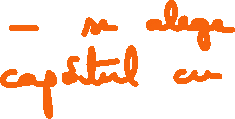 — se alege
capătul cu